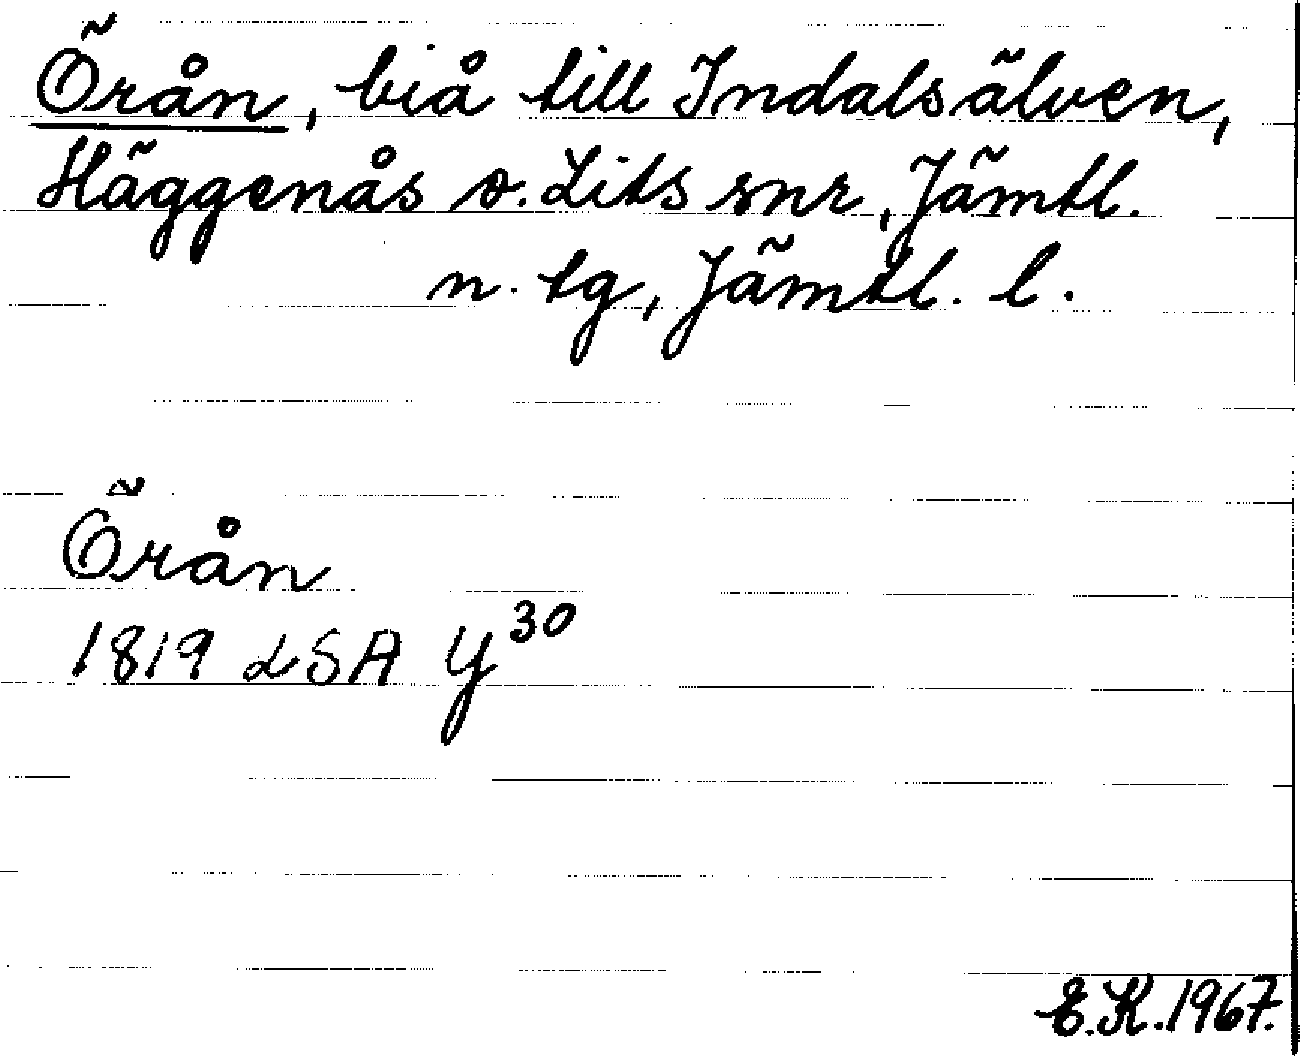 Örån, biå till Indalsälven,
Häggenås o. Lits snr, Jämtl.
n. tg, Jämtl. l.
Örån
1819 LSA Y³⁰
E.K. 1967.